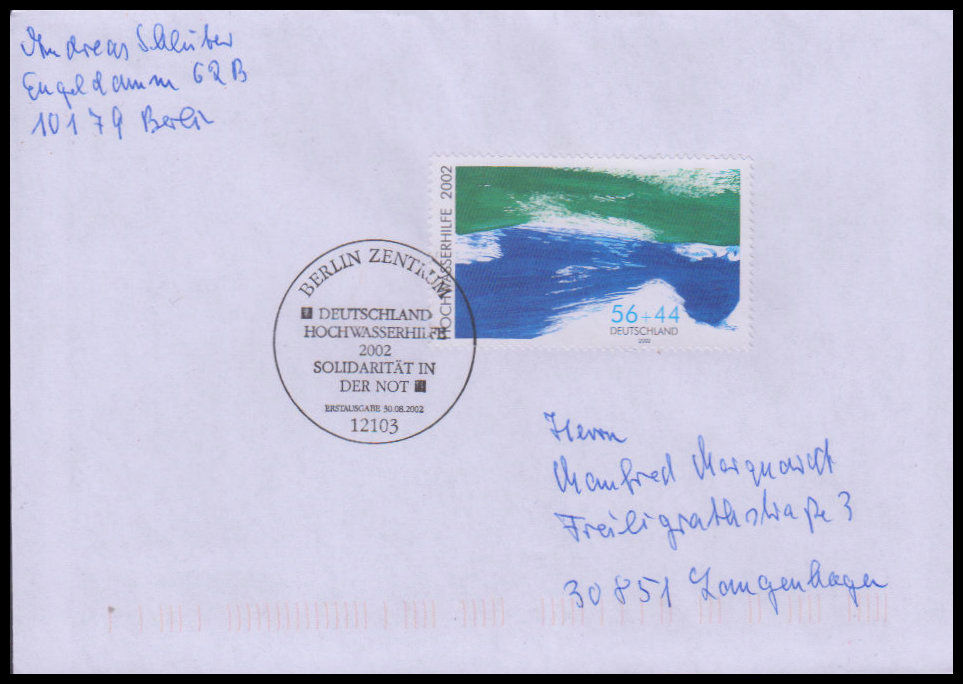 Andreas Schlüter
Engeldamm 62B
10179 Berlin
HOCHWASSERHILFE 2002
56+44
DEUTSCHLAND
2002
BERLIN ZENTRUM
DEUTSCHLAND
HOCHWASSERHILFE
2002
SOLIDARITÄT IN
DER NOT
ERSTAUSGABE 30.08.2002
12103
Herrn
Manfred Marquardt
Freiligrathstraße 3
30851 Langenhagen